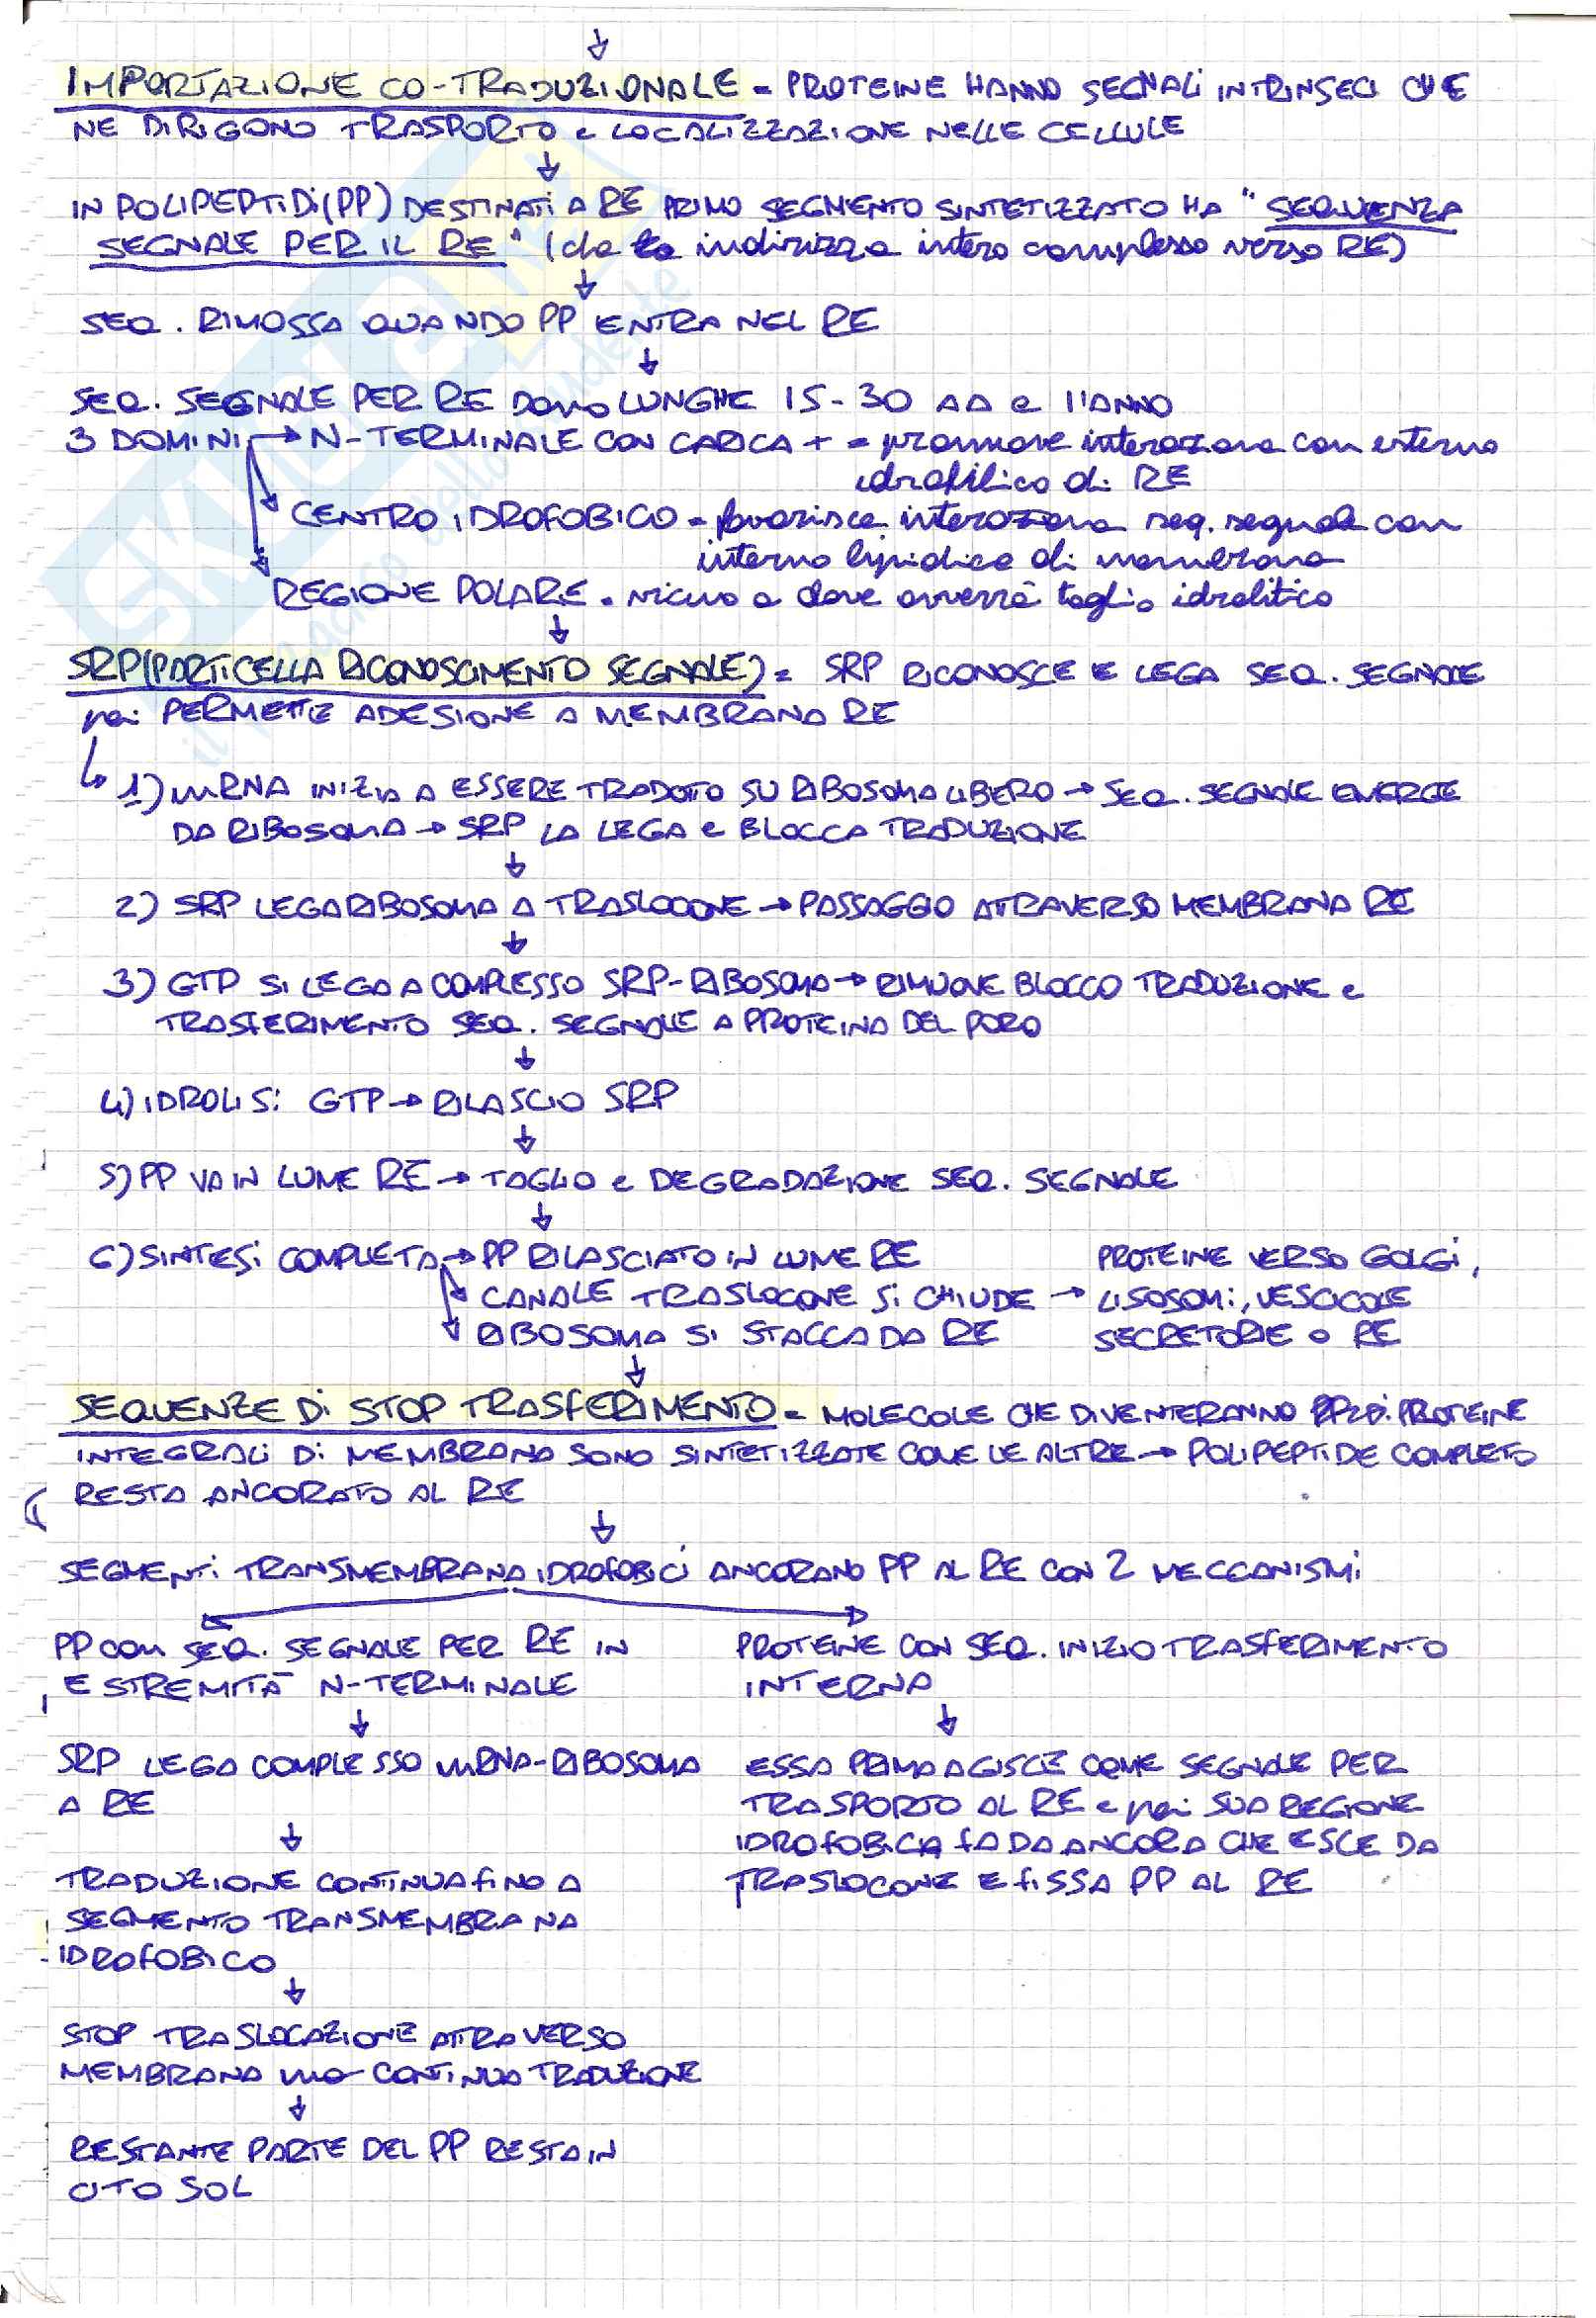 ↓
IMPORTAZIONE CO-TRADUZIONALE = PROTEINE HANNO SEGNALI INTRINSECI CHE
NE DIRIGONO TRASPORTO e LOCALIZZAZIONE NELLE CELLULE
↓
IN POLIPEPTIDI (PP) DESTINATI A RE PRIMO SEGMENTO SINTETIZZATO HA "SEQUENZA
SEGNALE PER IL RE" (che indirizza intero complesso verso RE)
↓
SEQ. RIMOSSA QUANDO PP ENTRA NEL RE
↓
SEQ. SEGNALE PER RE sono LUNGHE 15-30 AA e HANNO
3 DOMINI → N-TERMINALE CON CARICA + = promuove interazione con esterno
idrofilico di RE
CENTRO IDROFOBICO = favorisce interazione seq. segnale con
interno lipidico di membrana
REGIONE POLARE = vicino a dove avverrà taglio idrolitico
↓
SRP (PARTICELLA RICONOSCIMENTO SEGNALE) = SRP RICONOSCE E LEGA SEQ. SEGNALE
poi PERMETTE ADESIONE A MEMBRANA RE
↳ 1) mRNA INIZIA A ESSERE TRADOTTO SU RIBOSOMA LIBERO → SEQ. SEGNALE EMERGE
DA RIBOSOMA → SRP LA LEGA e BLOCCA TRADUZIONE
↓
2) SRP LEGA RIBOSOMA A TRASLOCONE → PASSAGGIO ATTRAVERSO MEMBRANA RE
↓
3) GTP SI LEGA A COMPLESSO SRP-RIBOSOMA → RIMUOVE BLOCCO TRADUZIONE e
TRASFERIMENTO SEQ. SEGNALE A PROTEINA DEL PORO
↓
4) IDROLISI GTP → RILASCIO SRP
↓
5) PP VA IN LUME RE → TAGLIO e DEGRADAZIONE SEQ. SEGNALE
↓
6) SINTESI COMPLETA → PP RILASCIATO IN LUME RE PROTEINE VERSO GOLGI,
CANALE TRASLOCONE SI CHIUDE → LISOSOMI, VESCICOLE
RIBOSOMA SI STACCA DA RE SECRETORIE o RE
↓
SEQUENZE DI STOP TRASFERIMENTO = MOLECOLE CHE DIVENTERANNO PROTEINE
INTEGRALI DI MEMBRANA SONO SINTETIZZATE COME LE ALTRE → POLIPEPTIDE COMPLETO
RESTA ANCORATO AL RE
↓
SEGMENTI TRANSMEMBRANA IDROFOBICI ANCORANO PP AL RE CON 2 MECCANISMI
PP con SEQ. SEGNALE PER RE IN
ESTREMITÀ N-TERMINALE
↓
SRP LEGA COMPLESSO mRNA-RIBOSOMA
A RE
↓
TRADUZIONE CONTINUA FINO A
SEGMENTO TRANSMEMBRANA
IDROFOBICO
↓
STOP TRASLOCAZIONE ATTRAVERSO
MEMBRANA ma CONTINUA TRADUZIONE
↓
RESTANTE PARTE DEL PP RESTA IN
CITOSOL
PROTEINE CON SEQ. INIZIO TRASFERIMENTO
INTERNA
↓
ESSA PRIMA AGISCE COME SEGNALE PER
TRASPORTO AL RE e poi SUA REGIONE
IDROFOBICA FA DA ANCORA CHE ESCE DA
TRASLOCONE E FISSA PP AL RE